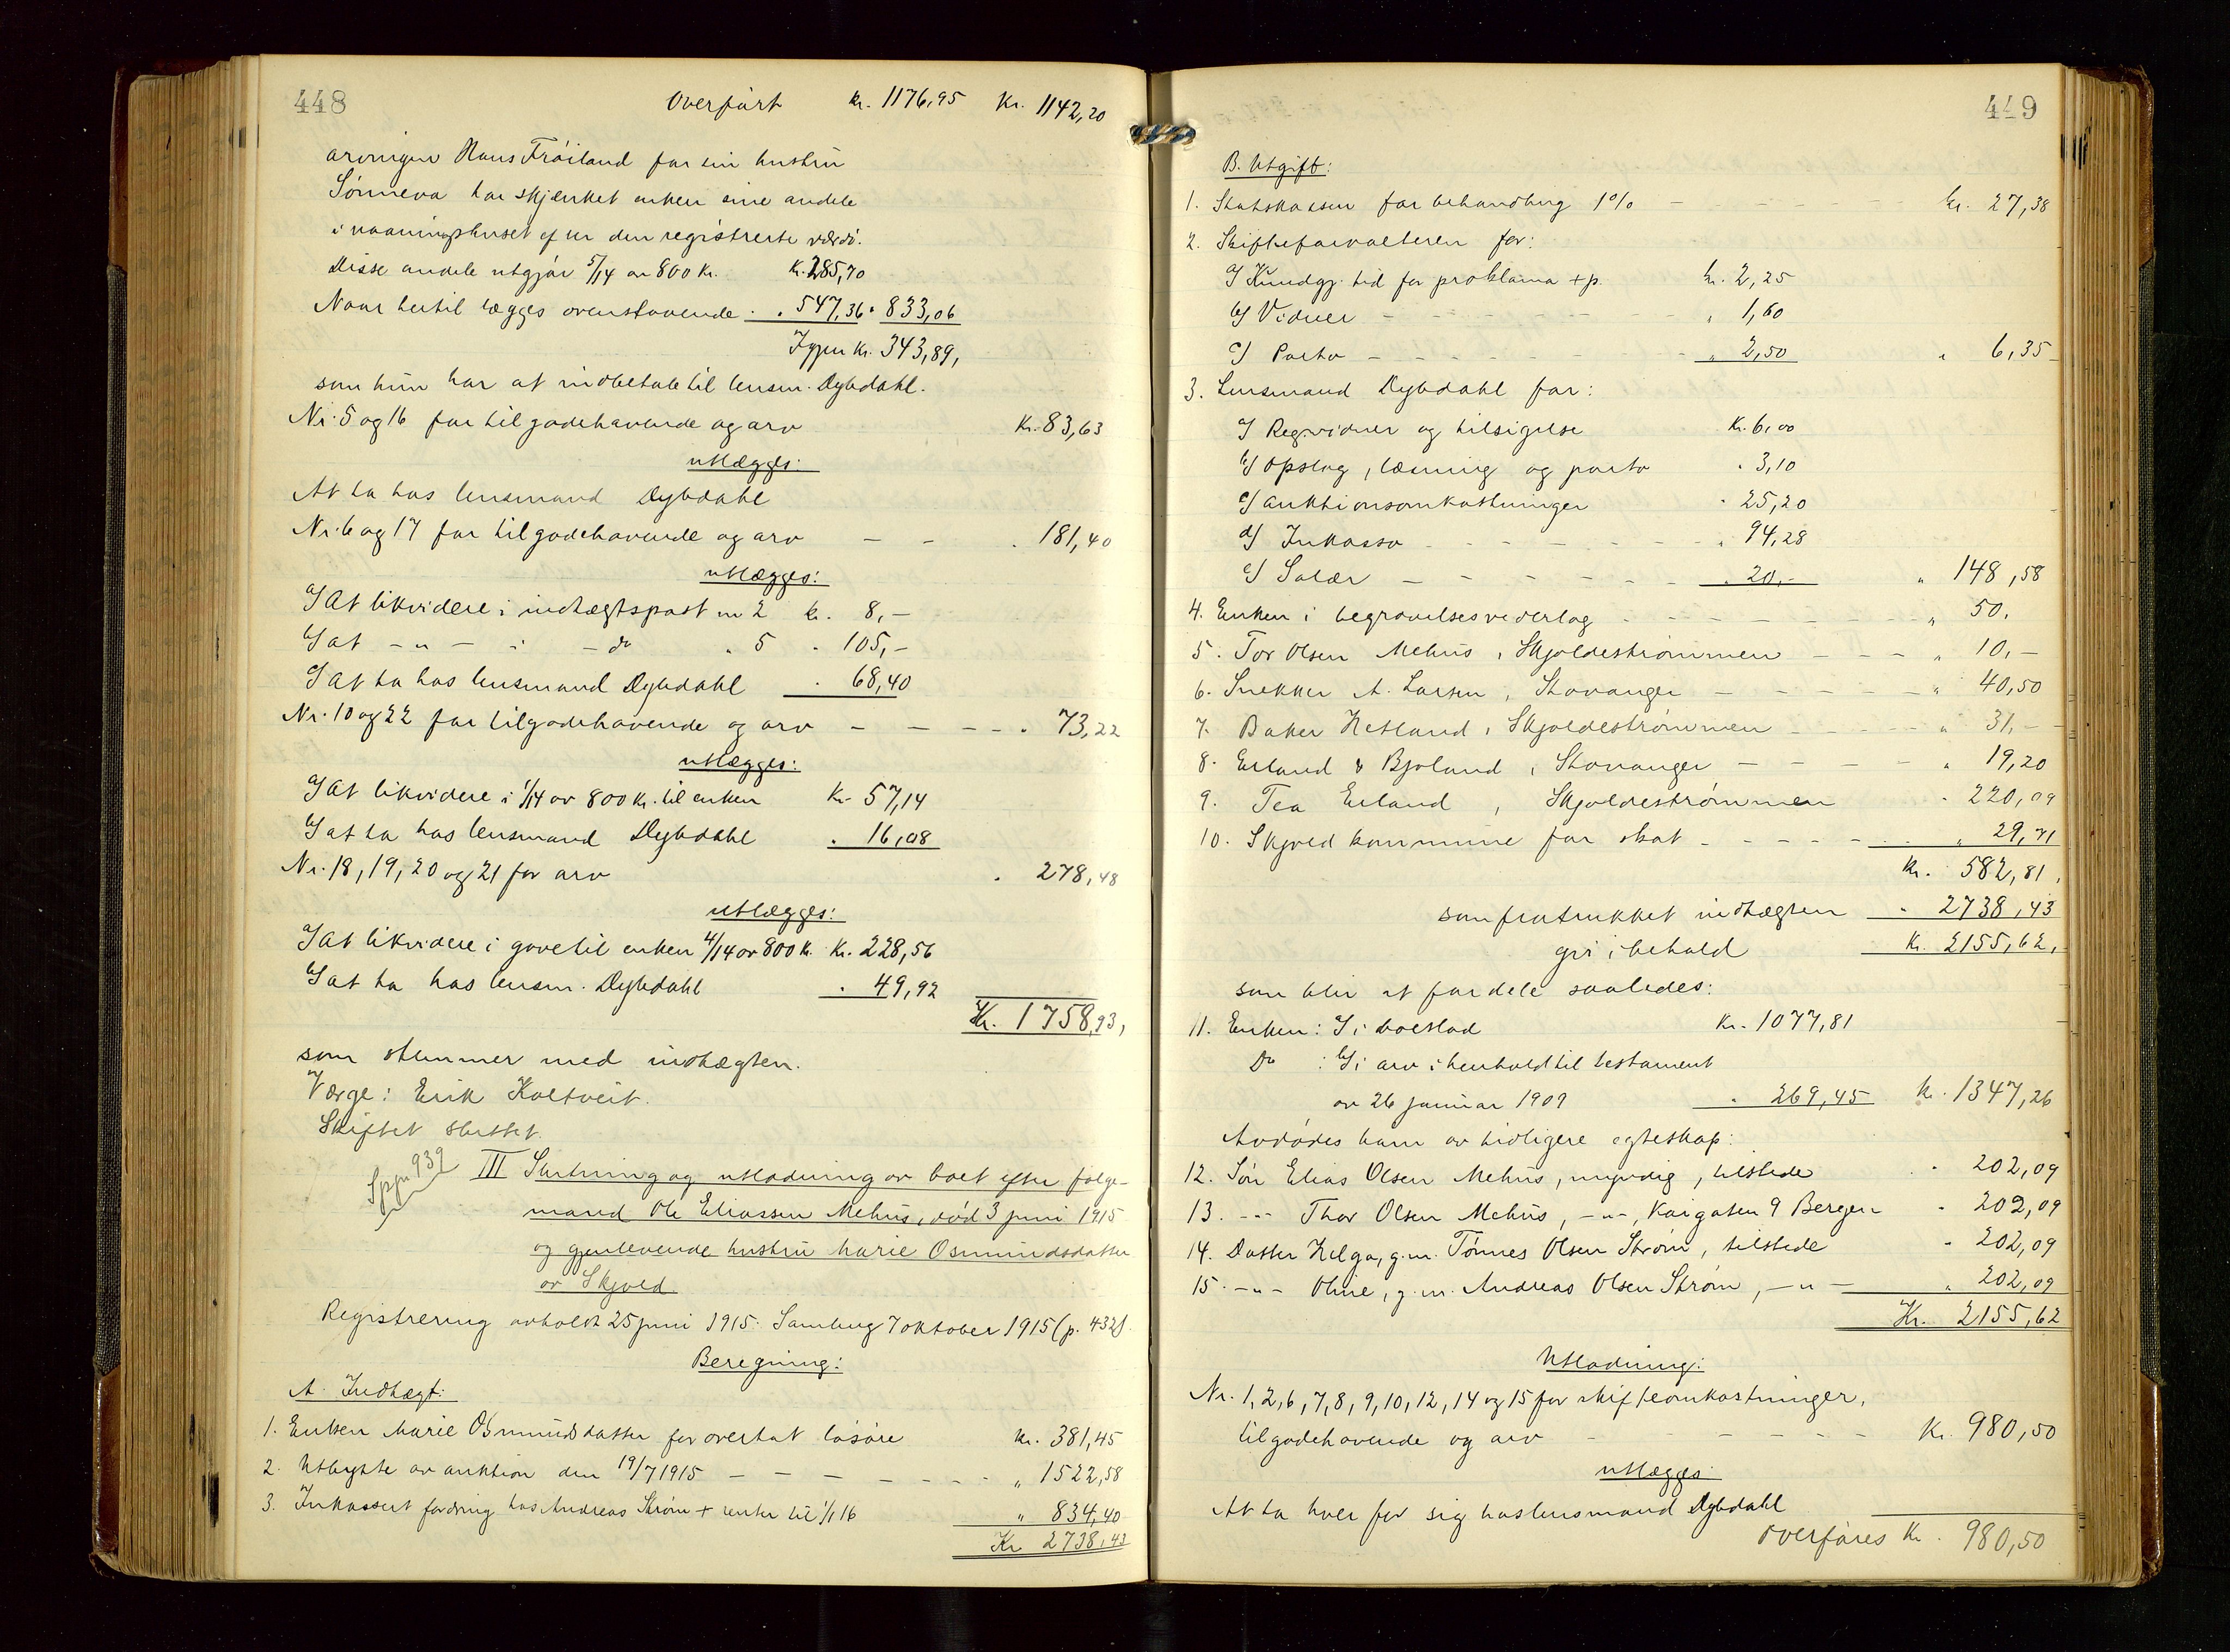 448
Overført kr. 1176,95 Kr. 1142,20
arvingen Hans Frøiland for sin hustru
Sønneva har skjænket enken sine andele
i vaaningshuset efter den registrerte værdi.
Disse andele utgjør 5/14 av 800 Kr. Kr. 285,70
Naar hertil lægges ovenstaaende . " 547,36 " 833,06
Igjen Kr. 343,89,
som hun har at indbetale til lensm. Dybdahl.
Nr. 5 og 16 for tilgodehavende og arv Kr. 83,63
utlægges:
At ta hos lensmand Dybdahl
Nr. 6 og 17 for tilgodehavende og arv — — . 181,40
utlægges:
a) At likvidere i indtægtspost nr 2 kr. 8,-
b) at - " - i - do " 5 . 105,-
c) At ta hos lensmand Dybdahl . 68,40
Nr. 10 og 22 for tilgodehavende og arv — — — . 73,22
utlægges:
a) At likvidere i 1/14 av 800 Kr. til enken Kr. 57,14
b) at ta hos lensmand Dybdahl . 16,08
Nr. 18, 19, 20 og 21 for arv . 278,48
utlægges:
a) At likvidere i gave til enken 4/14 av 800 Kr. Kr. 228,56
b) at ta hos lensm. Dybdahl . 49,92
Kr. 1758,93,
som stemmer med indtægten.
Værge: Erik Koltveit.
Skiftet sluttet.
Sppr 939
III Slutning og utlodning av boet efter følge-
mand Ole Eliassen Mehus, død 3 juni 1915
og gjenlevende hustru Marie Osmundsdatter
av Skjold
Registrering avholdt 25 juni 1915. Samling 7 oktober 1915 (p. 432).
Beregning:
A. Indtægt:
1. Enken Marie Osmundsdatter for overtat løsøre kr. 381,45
2. Utbytte av auktion den 19/7 1915 — — — — — " 1522,58
3. Inkassert fordring hos Andreas Strøm + renter til 1/1 16 " 834,40
Kr 2738,43
449
B. Utgift:
1. Statskassen for behandling 1% — — — — kr. 27,38
2. Skifteforvalteren for:
a) Kundgj. tid for proklama + p. kr. 2,25
b) Vidner — — — — — " 1,60
c) Porto — — — — — " 2,50 " 6,35
3. Lensmand Dybdahl for:
a) Reg.vidner og tilsigelse Kr. 6,00
b) Opslag, læsning og porto . 3,10
c) auktionsomkostninger . 25,20
d) Inkasso — — — — — " 94,28
e) Salær — — — — — . 20,- " 148,58
4. Enken i begravelsesvederlag — — — — — " 50,
5. Tor Olsen Mehus, Skjoldestrømmen — — — " 10,-
6. Snekker A. Larsen, Stavanger — — — — " 40,50
7. Baker Hetland, Skjoldestrømmen — — — " 31,-
8. Erland & Bjoland, Stavanger — — — — " 19,20
9. Tea Erland, Skjoldestrømmen . 220,09
10. Skjold kommune for skat — — — — " 29,71
Kr. 582,81,
som fratrukket indtægten " 2738,43
gir i behold Kr. 2155,62,
som blir at fordele saaledes:
11. Enken: a) i boeslod Kr. 1077,81
Do : b) i arv i henhold til testament
av 26 januar 1909 . 269,45 Kr. 1347,26
Avdødes barn av tidligere egteskap:
12. Søn Elias Olsen Mehus, myndig, tilstede . " 202,09
13. -"- Thor Olsen Mehus, -"-, Kaigaten 9 Bergen " 202,09
14. Datter Helga, g.m. Tønnes Olsen Strøm, tilstede " 202,09
15. -"- Oline, g.m. Andreas Olsen Strøm, -"- " 202,09
Kr. 2155,62
Utlodning:
Nr. 1, 2, 6, 7, 8, 9, 10, 12, 14 og 15 for skifteomkostninger,
tilgodehavende og arv — — — — — Kr. 980,50
utlægges:
At ta hver for sig hos lensmand Dybdahl
Overføres Kr. 980,50